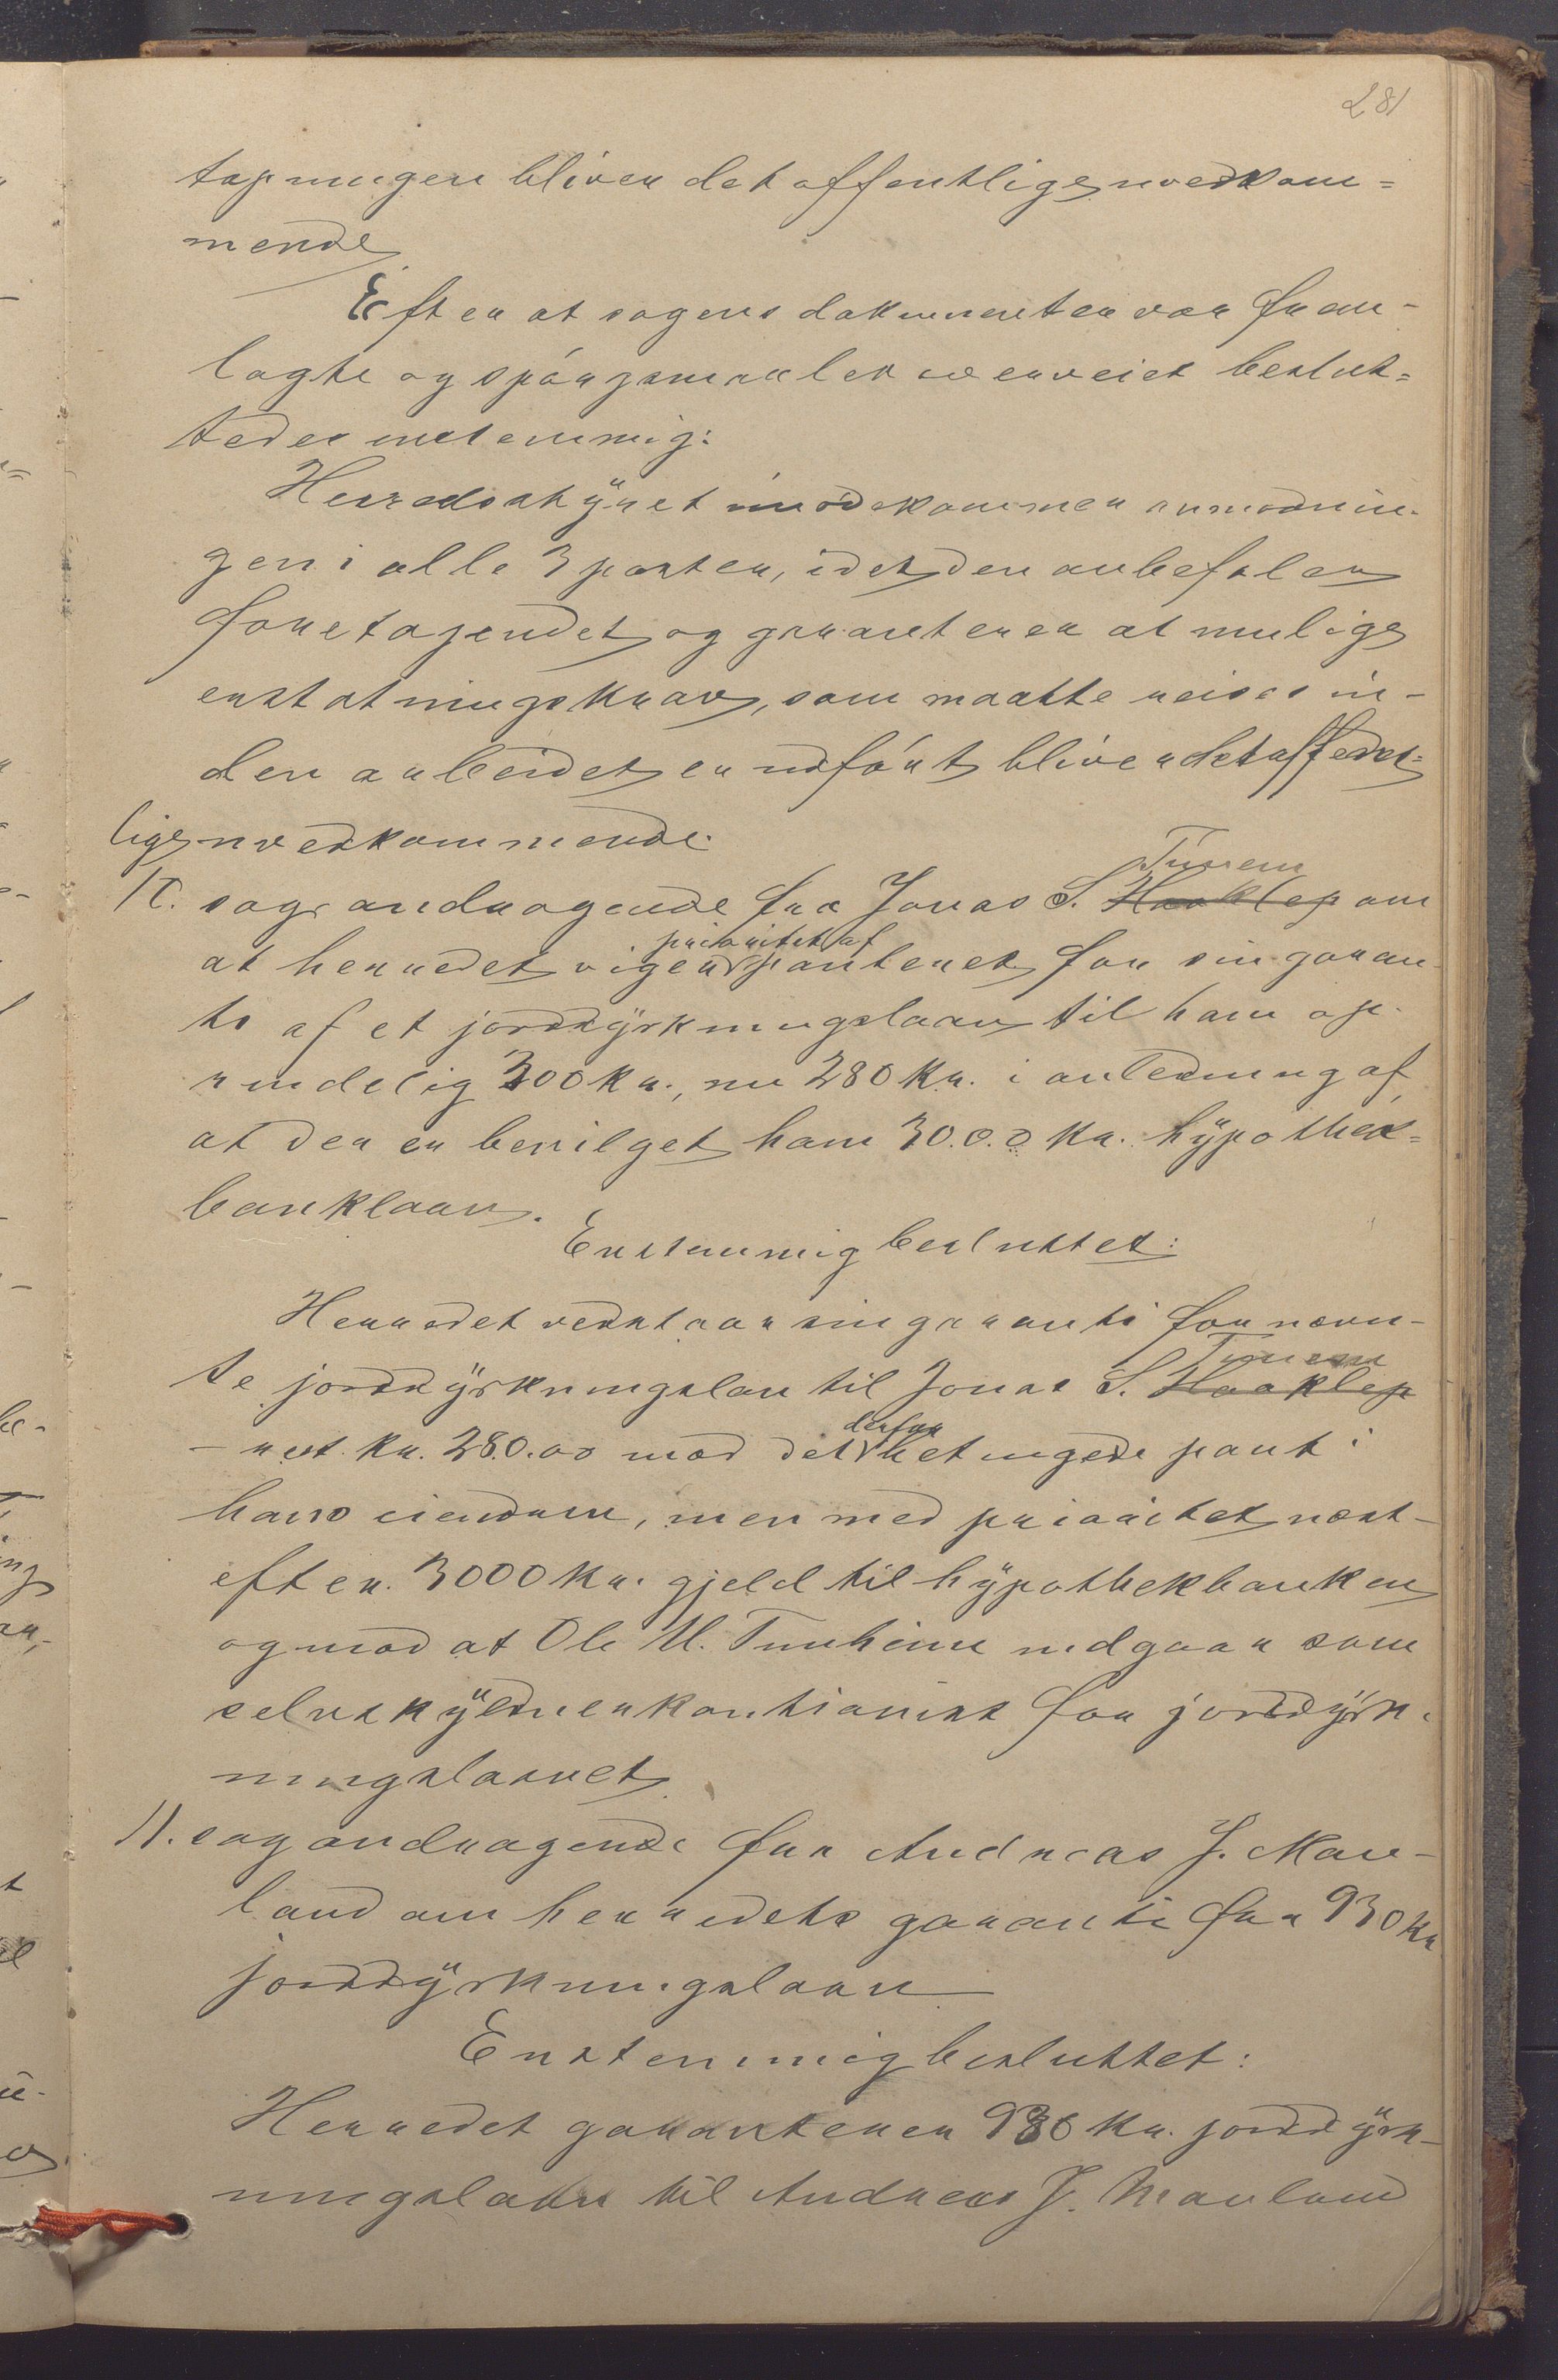 281
tapningen bliver det offentlige uvedkom=
mende
Efter at sagens dokumenter var frem-
lagte og spórgsmaalet overveiet beslut=
tedes enstemmig:
Herredsstyret imódekommer anmodnin-
gen i alle 3 poster, idet den anbefaler
foretagendet og garanterer at mulige
erstatningskrav, som maatte reises in-
den arbeidet er udfórt bliver det offent=
lige uvedkommende.
10. sag: andragende fra Jonas S. Haaklep om
Tunem
at herredet viger panteret for sin garan
prioritet af
ti af et jorddyrkningslaan til ham op-
rindelig 300 Kr., nu 280 Kr. i anledning af
at der er bevilget ham 3000 Kr. hypothek=
banklaan.
Enstemmig besluttet:
Herredet vedstaar sin garanti for nævn-
te jorddyrkningslan til Jonas S. Haaklep
Tunem
- rest Kr. 280.00 mod det betingede pant i
derfor
hans eiendom, men med prioritet næst-
efter 3000 Kr. gjeld til hypothekbanken
og mod at Ole M. Tunheim indgaar som
selvskyldnerkautionist for jorddyrk-
ningslaanet.
11. sag andragende fra Andreas J. Mau-
land om herredets garanti for 930 Kr
jorddyrkningslaan
Enstemmig besluttet:
Herredet garanterer 930 Kr. jorddyrk-
ningslaan til Andreas J. Mauland